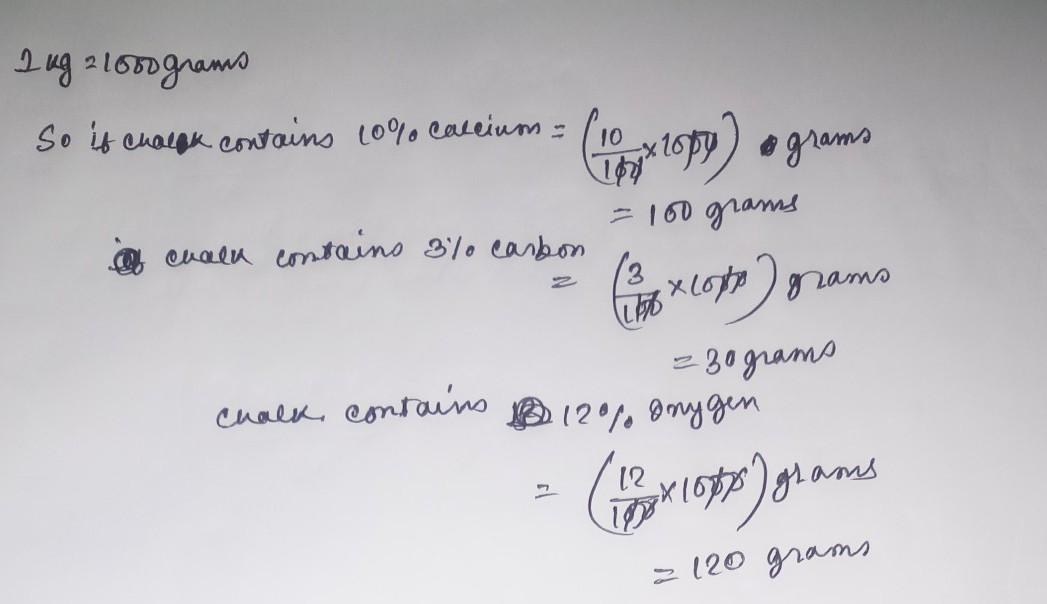 1 kg = 1000 grams
So if chalk contains 10% calcium = (10/100 × 1000) grams
= 100 grams
chalk contains 3% carbon
= (3/100 × 1000) grams
= 30 grams
chalk contains 12% oxygen
= (12/100 × 1000) grams
= 120 grams